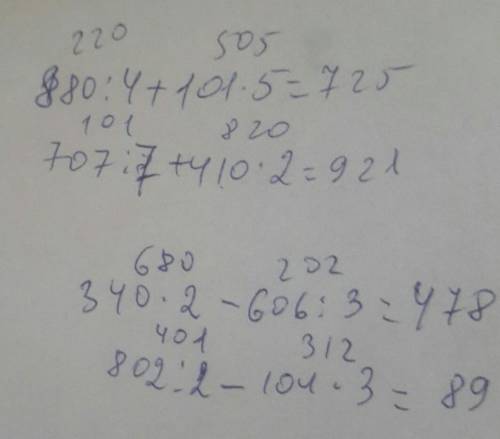 220 505
880:4+101·5=725
101 820
707:7+410·2=921
680 202
340·2-606:3=478
401 312
802:2-104·3=89